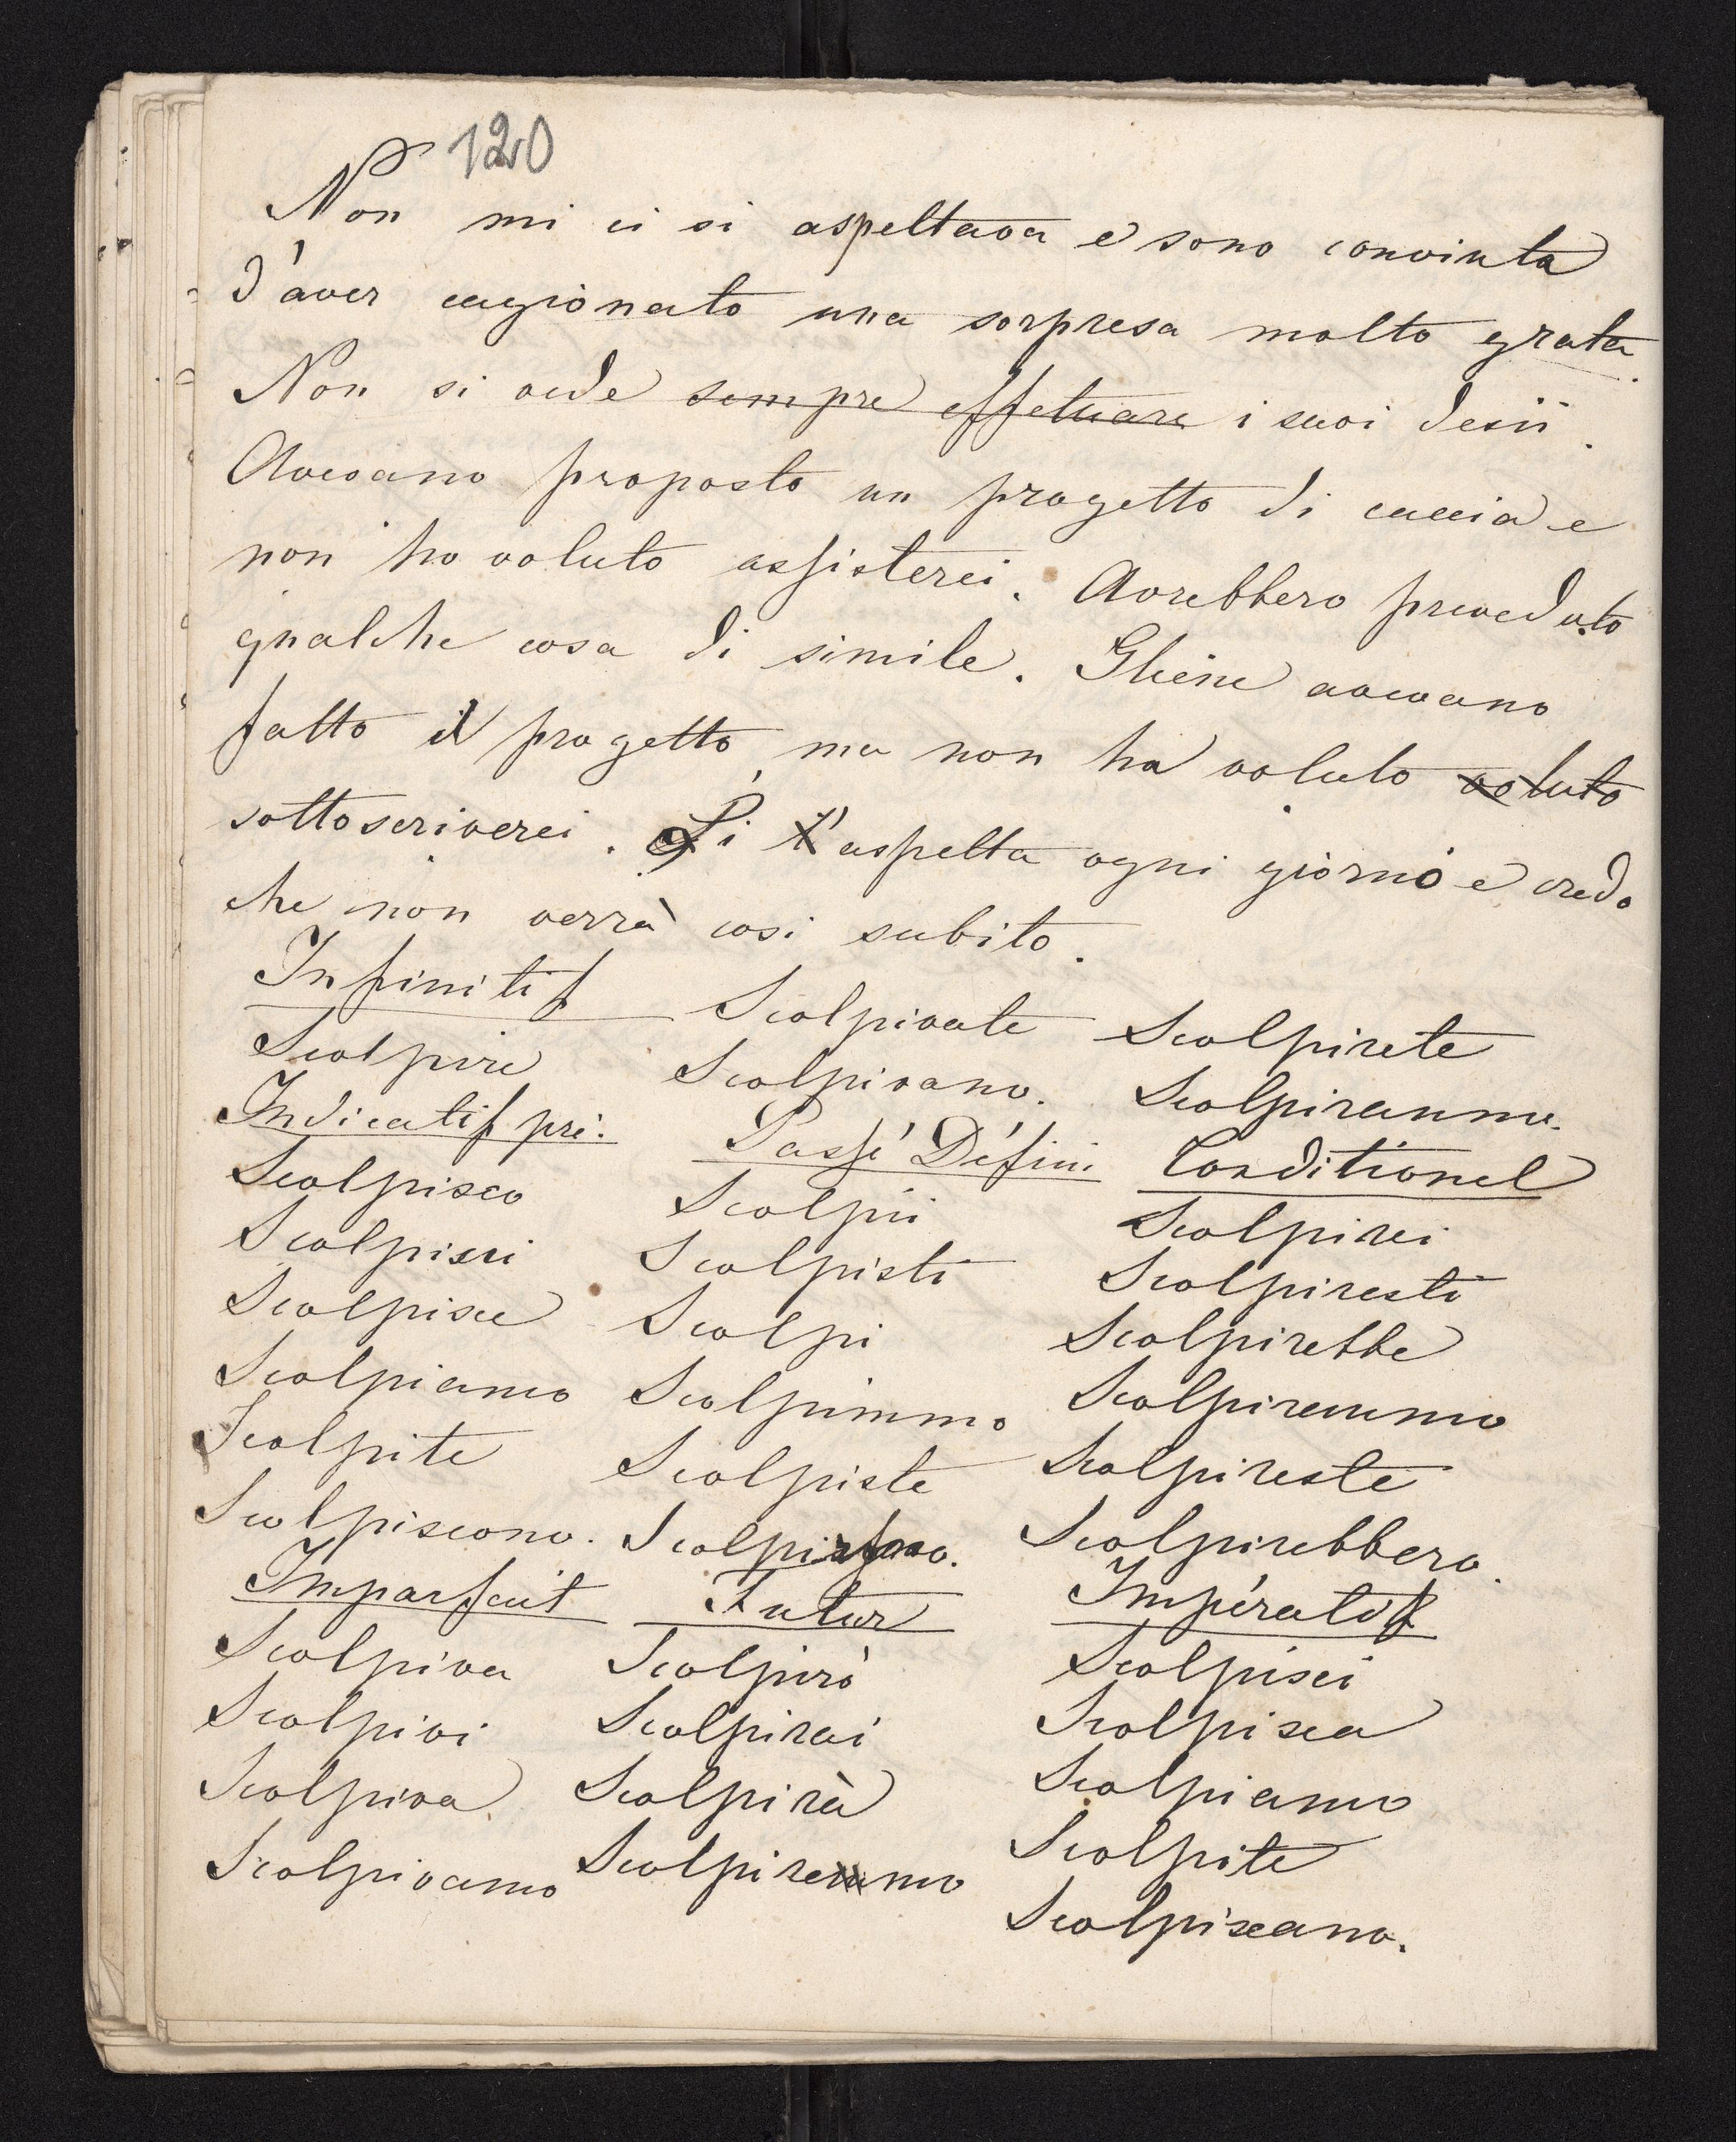 120
Non mi ci si aspettava e sono convinta
d'aver cagionato una sorpresa molto grata.
Non si vede sempre effetuare i suoi desii.
Avevano proposto un progetto di caccia e
non ho voluto assisterci. Avrebbero preveduto
qualche cosa di simile. Gliene avevano
fatto il progetto, ma non ha voluto voluto
sottoscriverci. Si l'aspetta ogni giorno e credo
che non verrà così subito.
Infinitif
Scolpire
Indicatif pré.
Scolpisco
Scolpisci
Scolpisce
Scolpiamo
Scolpite
Scolpiscono.
Imparfait
Scolpiva
Scolpivi
Scolpiva
Scolpivamo
Scolpivate
Scolpivano.
Passé Défini
Scolpii
Scolpisti
Scolpi
Scolpimmo
Scolpiste
Futur
Scolpirò
Scolpirai
Scolpirà
Scolpiremo
Scolpirete
Scolpiranno.
Conditionel
Scolpirei
Scolpiresti
Scolpirebbe
Scolpiremmo
Scolpireste
Scolpirebbero.
Impératif
Scolpisci
Scolpisca
Scolpiamo
Scolpite
Scolpiscano.